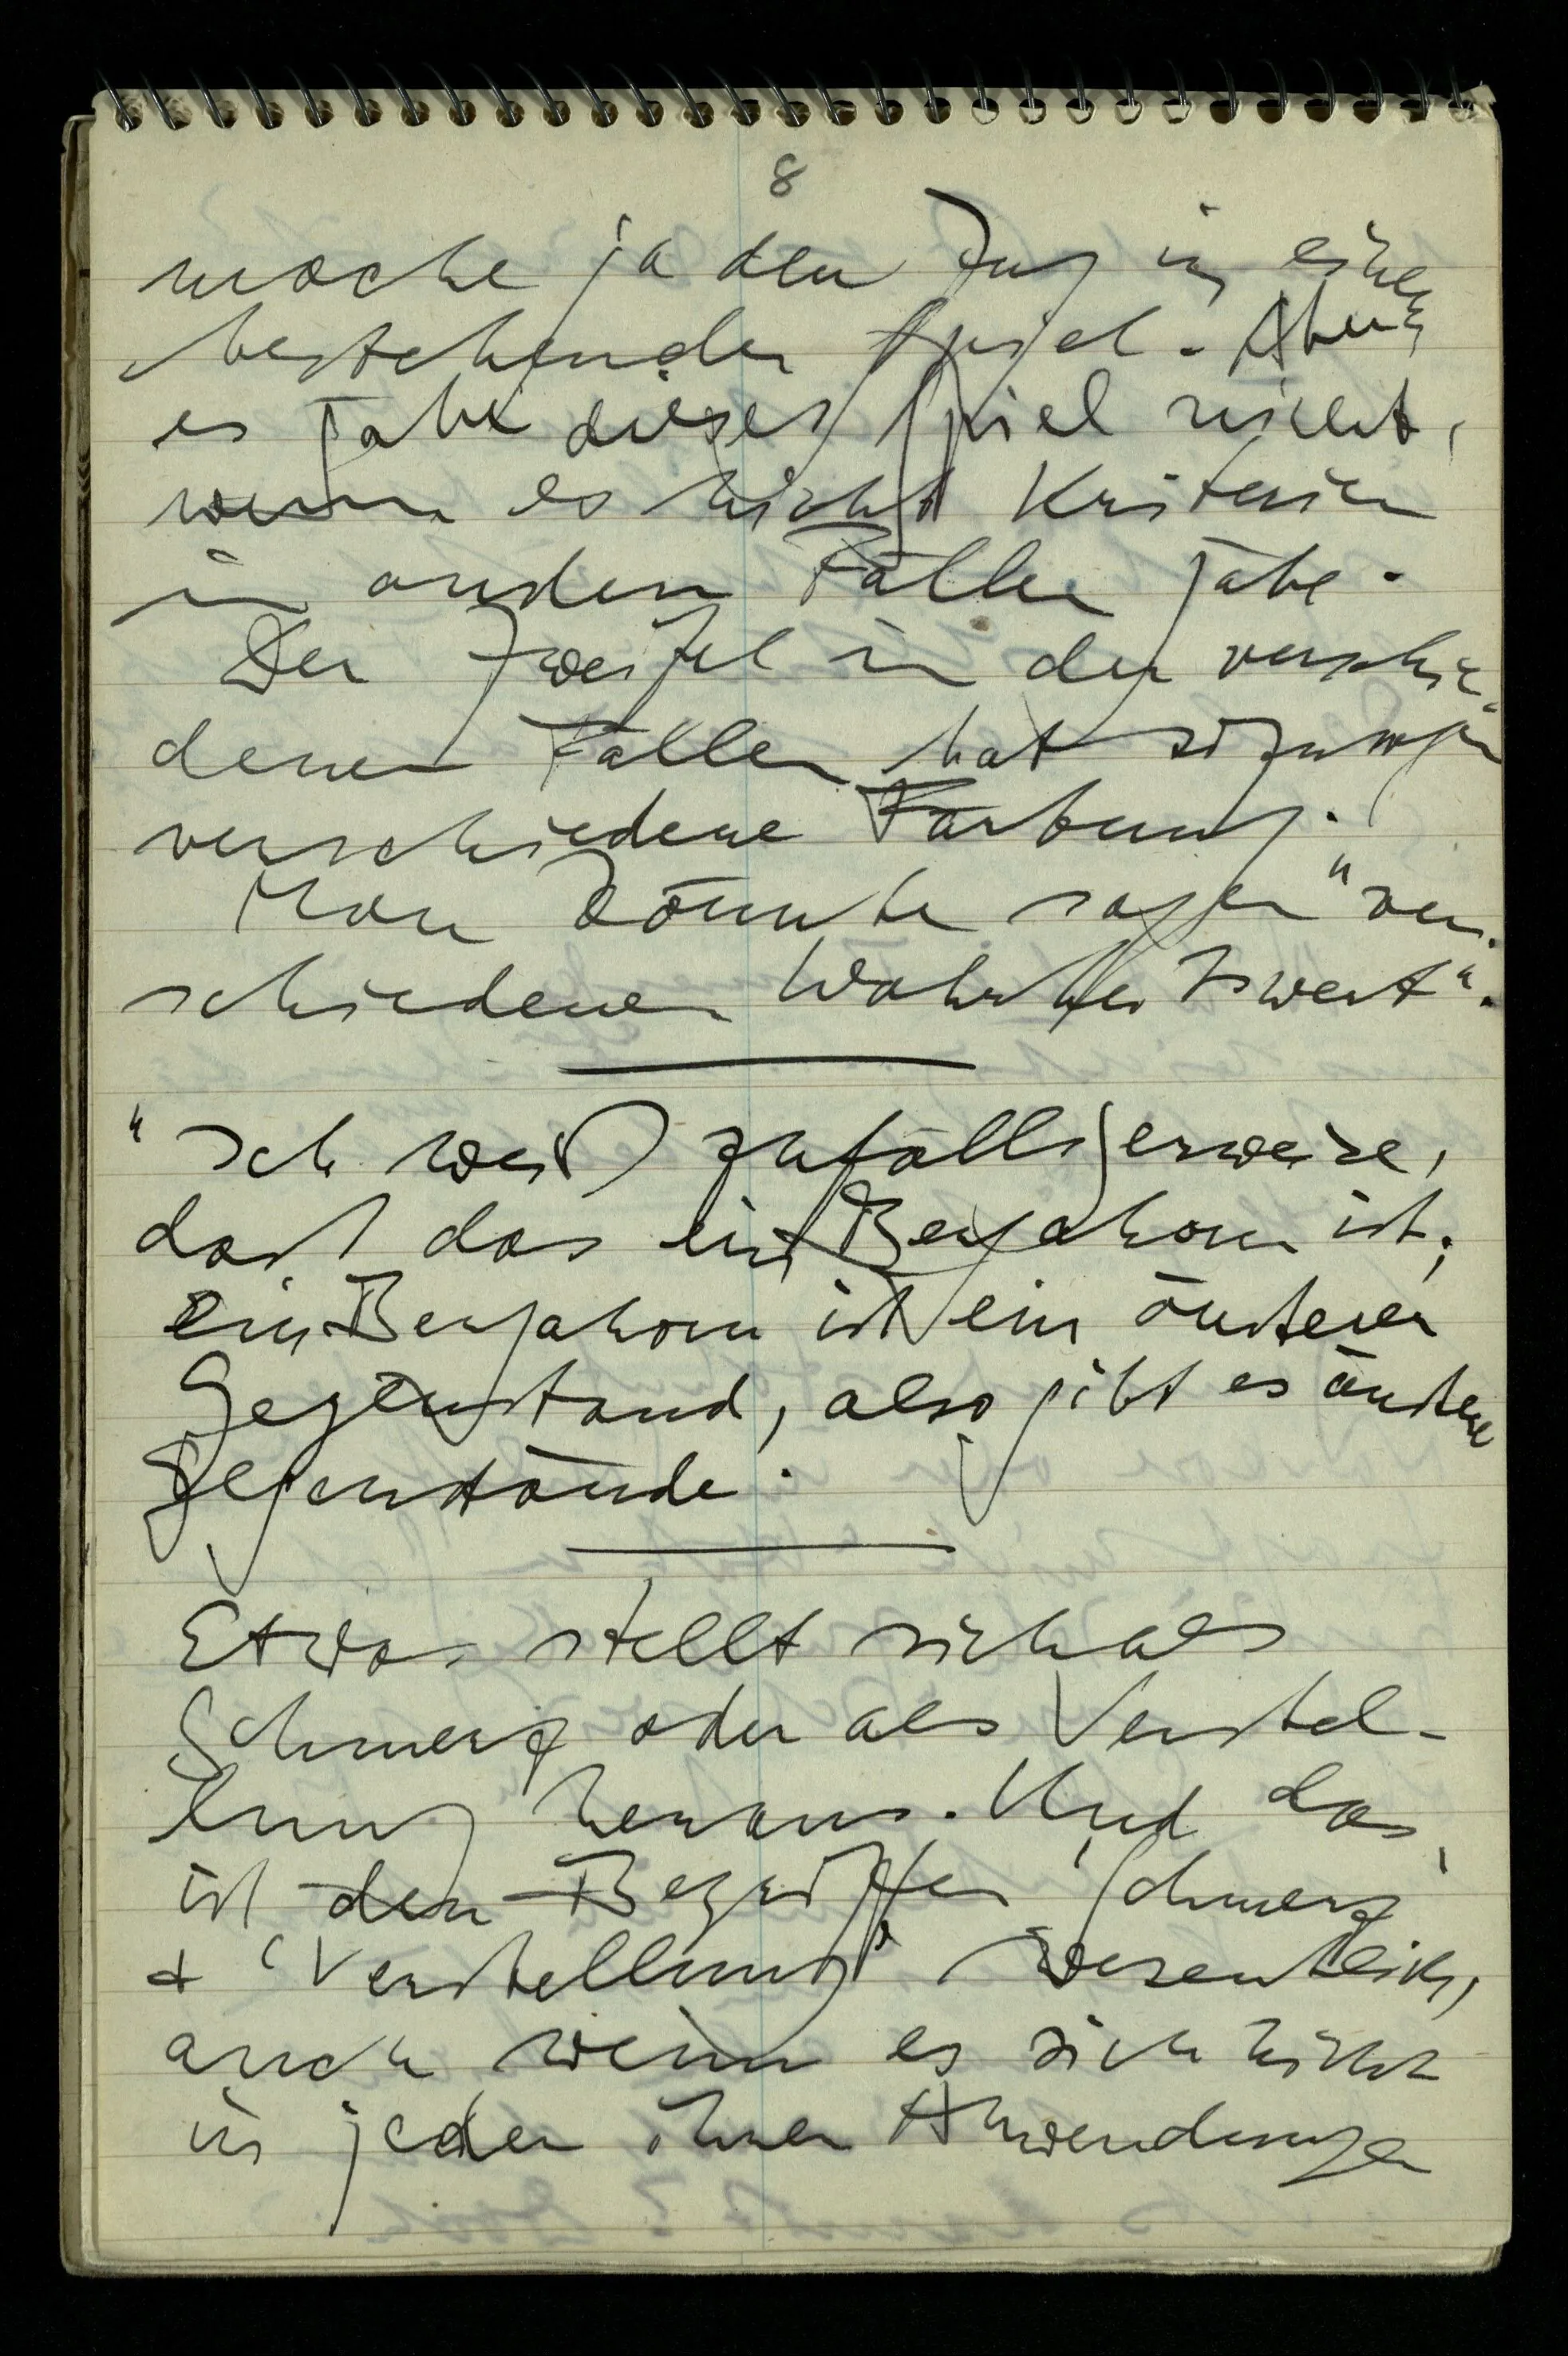 8
mache ja den Zug in einem
bestehenden Spiel. Aber
es gäbe dieses Spiel nicht,
wenn es nicht Kriterien
in andern Fällen gäbe.
Der Zweifel in den verschie-
denen Fällen hat sozusagen
verschiedene Färbung.
Man könnte sagen "ver-
schiedenen Wahrheitswert".
"Ich weiß zufälligerweise,
daß das ein Bergahorn ist;
ein Bergahorn ist ein äußerer
Gegenstand, also gibt es äußere
Gegenstände.
Etwas stellt sich als
Schmerz oder als Verstel-
lung heraus. Und das
ist den Begriffen 'Schmerz'
+ 'Verstellung' wesentlich,
auch wenn es sich nicht
in jeder ihrer Anwendungen